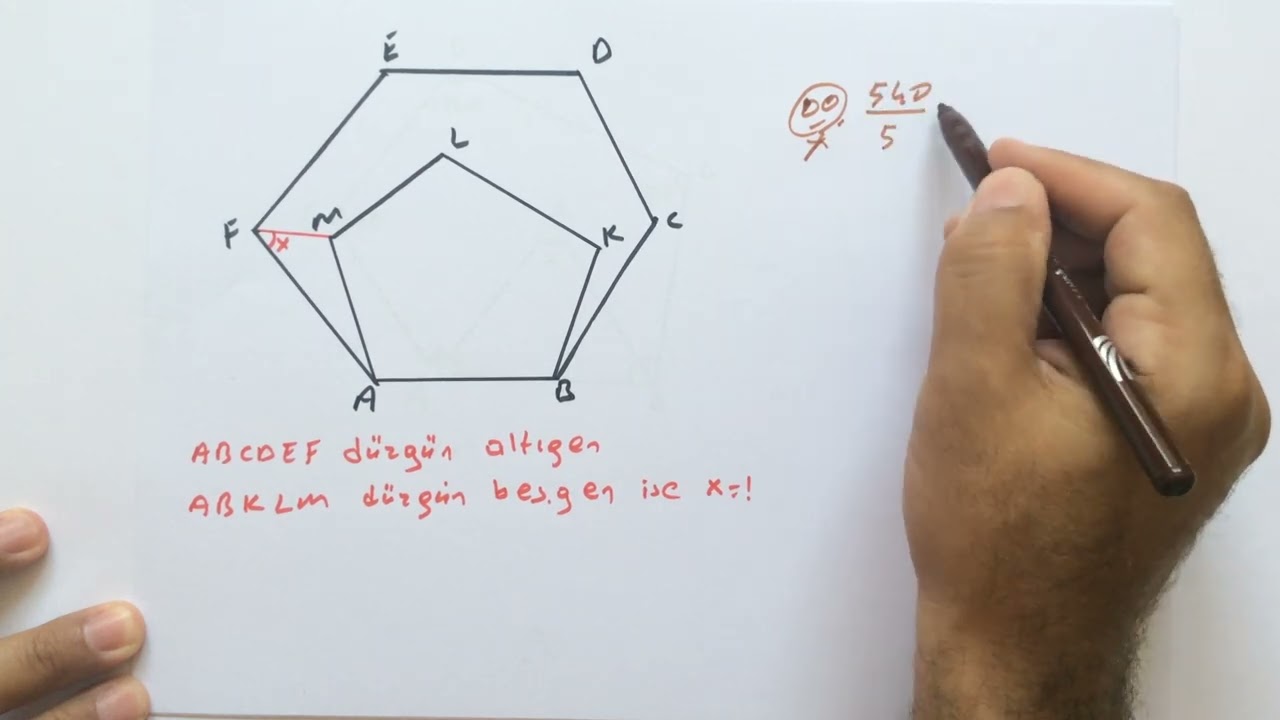 E D
L
F x M K C
A B
ABCDEF düzgün altıgen
ABKLM düzgün beşgen ise x=!
540
5